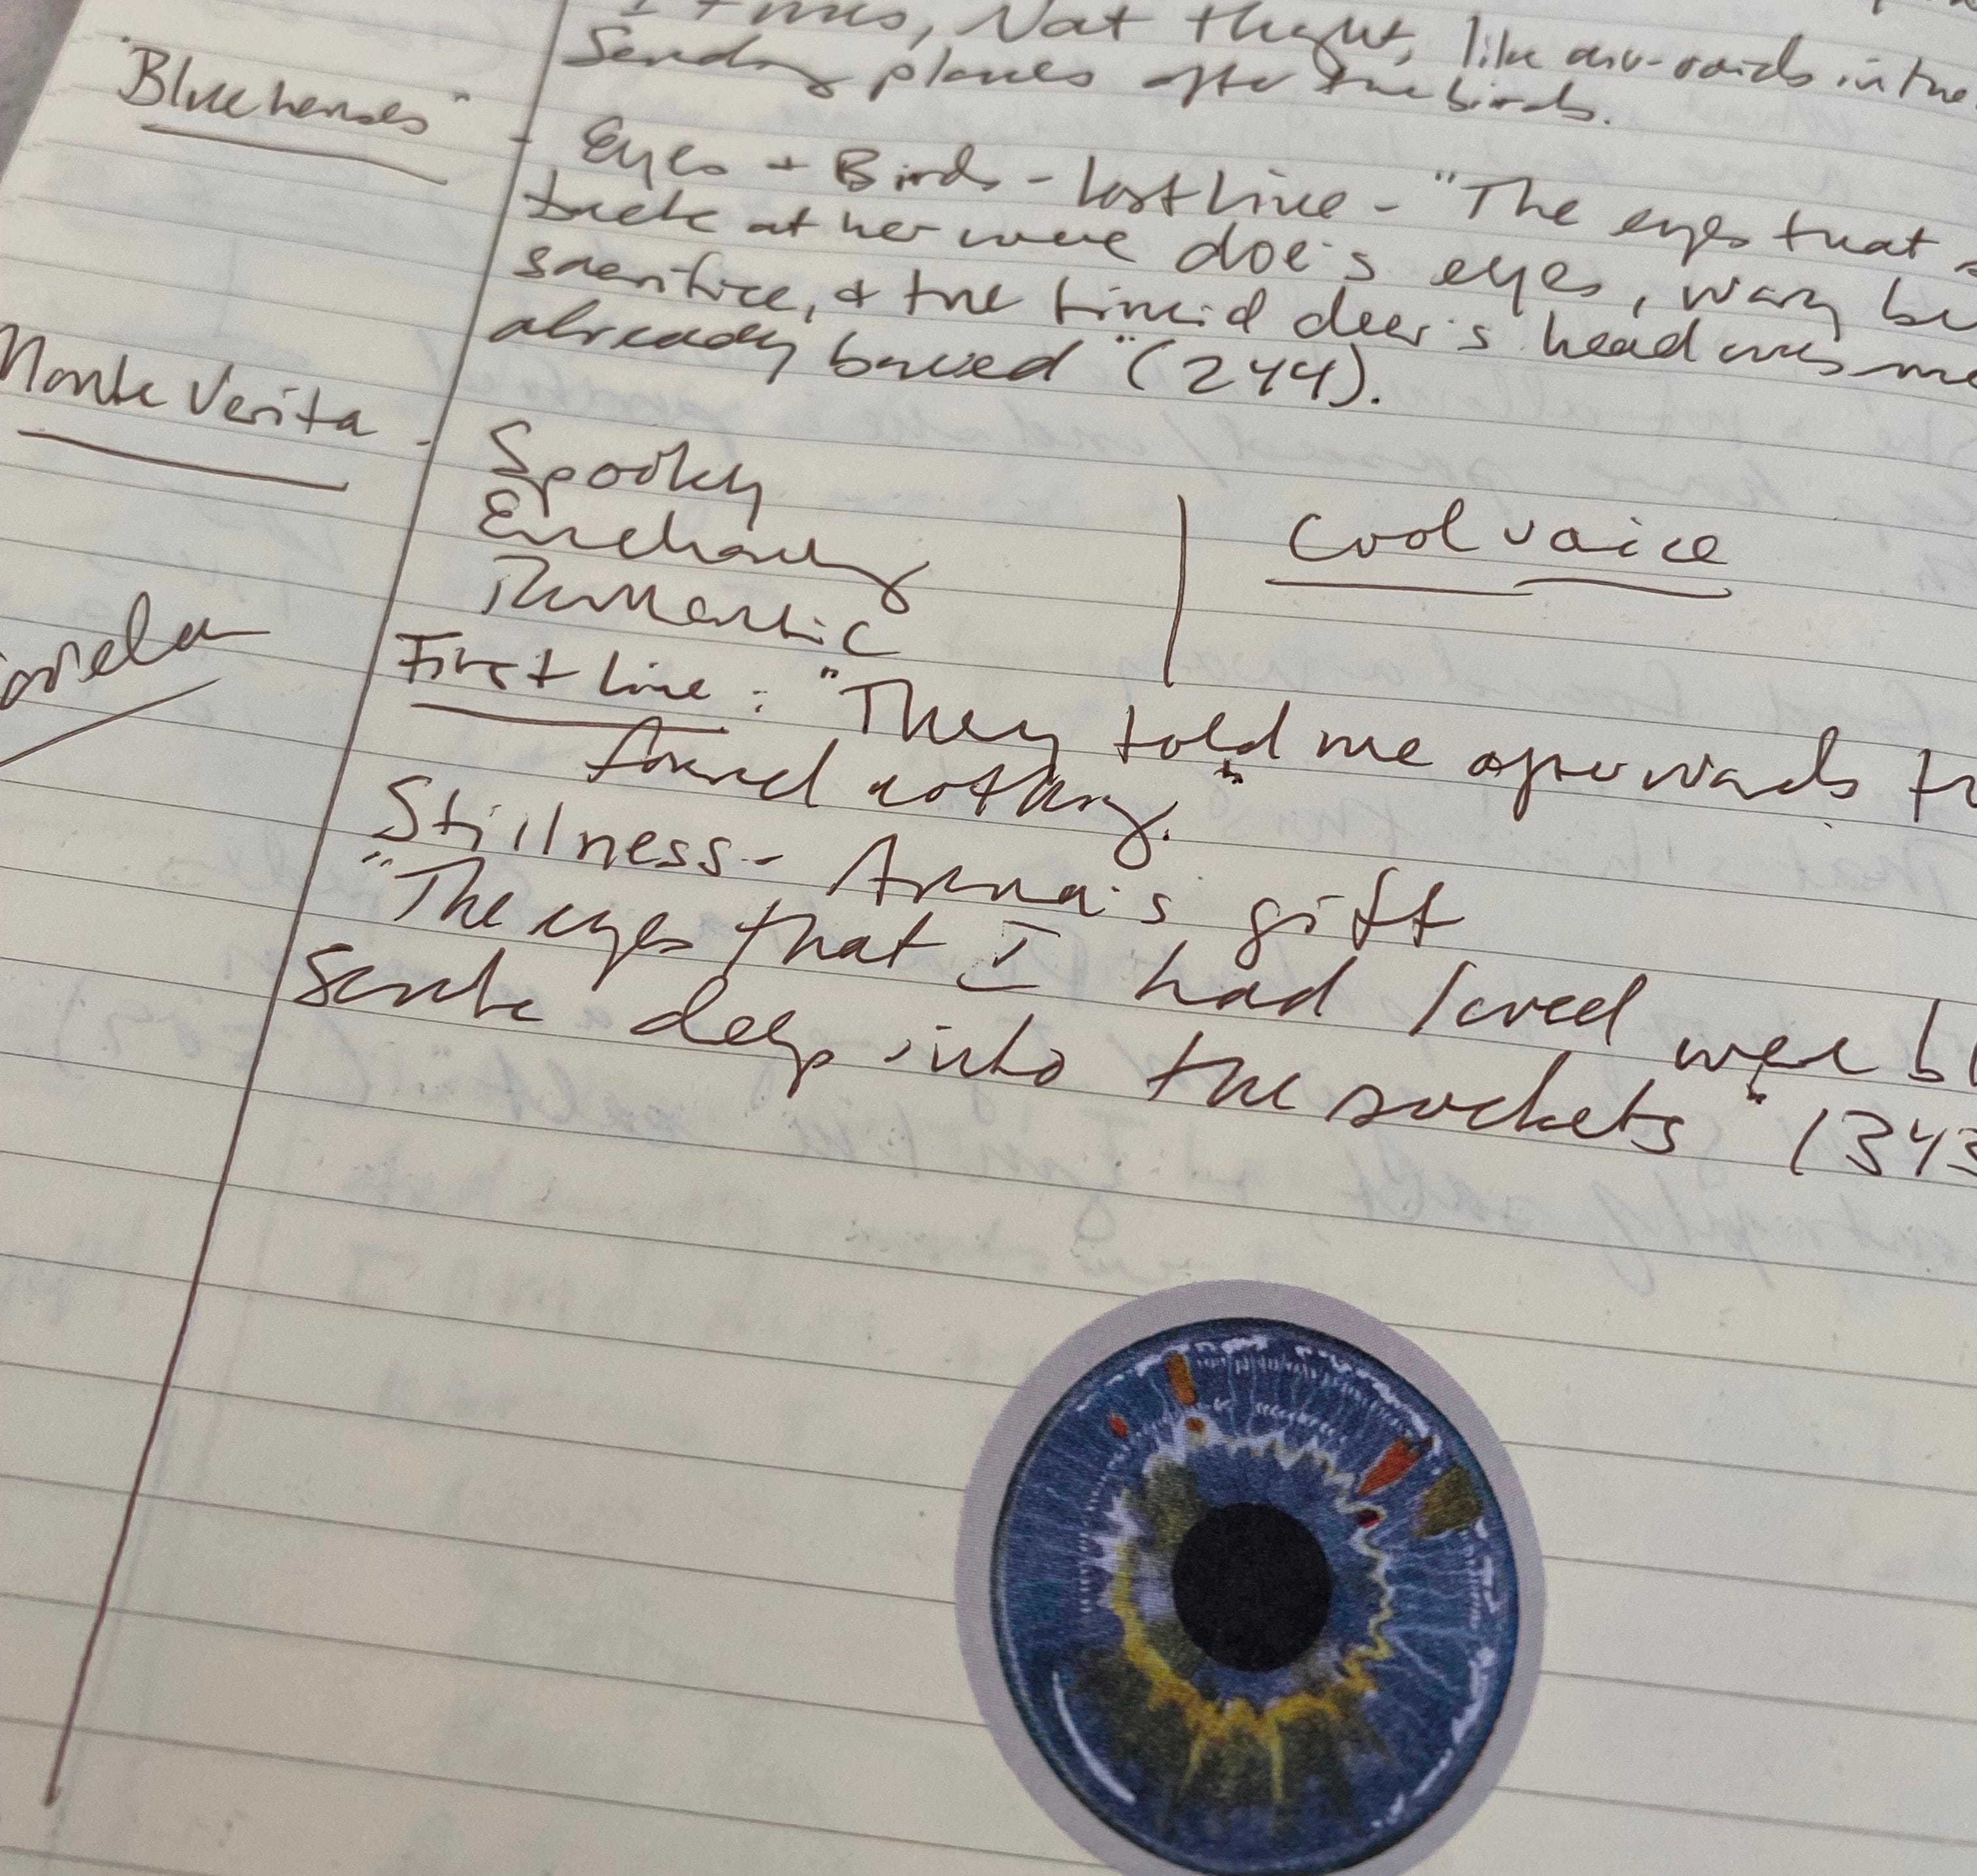 times, Nat thought, like air-raids in the
Sending planes after the birds.
"Blue lenses" - Eyes + Birds - last line - "The eyes that
back at her were doe's eyes, wary be
sacrifice, & the timid deer's head was me
already bowed" (244).
Monte Verita - Spooky
Enchanting | Cool voice
Romantic
First line: "They told me afterwards
found nothing."
Stillness - Anna's gift
"The eyes that I had loved were bl
sunk deep into the sockets" (343